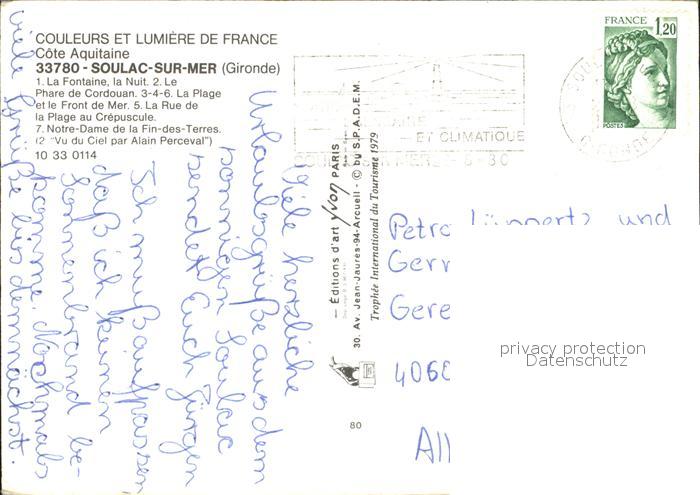 COULEURS ET LUMIÈRE DE FRANCE
Côte Aquitaine
33780 - SOULAC-SUR-MER (Gironde)
1. La Fontaine, la Nuit. 2. Le
Phare de Cordouan. 3-4-6. La Plage
et le Front de Mer. 5. La Rue de
la Plage au Crépuscule.
7. Notre-Dame de la Fin-des-Terres.
(2 "Vu du Ciel par Alain Perceval")
10 33 0114
Viele herzliche
Urlaubsgrüße aus dem
sonnigen Soulac
sendet Euch Jürgen
Ich muß aufpassen
daß ich keinen
Sonnenbrand be-
komme. Nochmals
viele Grüße bis demnächst.
— Éditions d'art yvon PARIS
30. Av. Jean-Jaurès-94-Arcueil - © by S.P.A.D.E.M.
Trophée International du Tourisme 1979
80
ET CLIMATIQUE
FRANCE
1,20
POSTES
GIRONDE
Petra und
Gerr
Gere
4060
All
privacy protection
Datenschutz